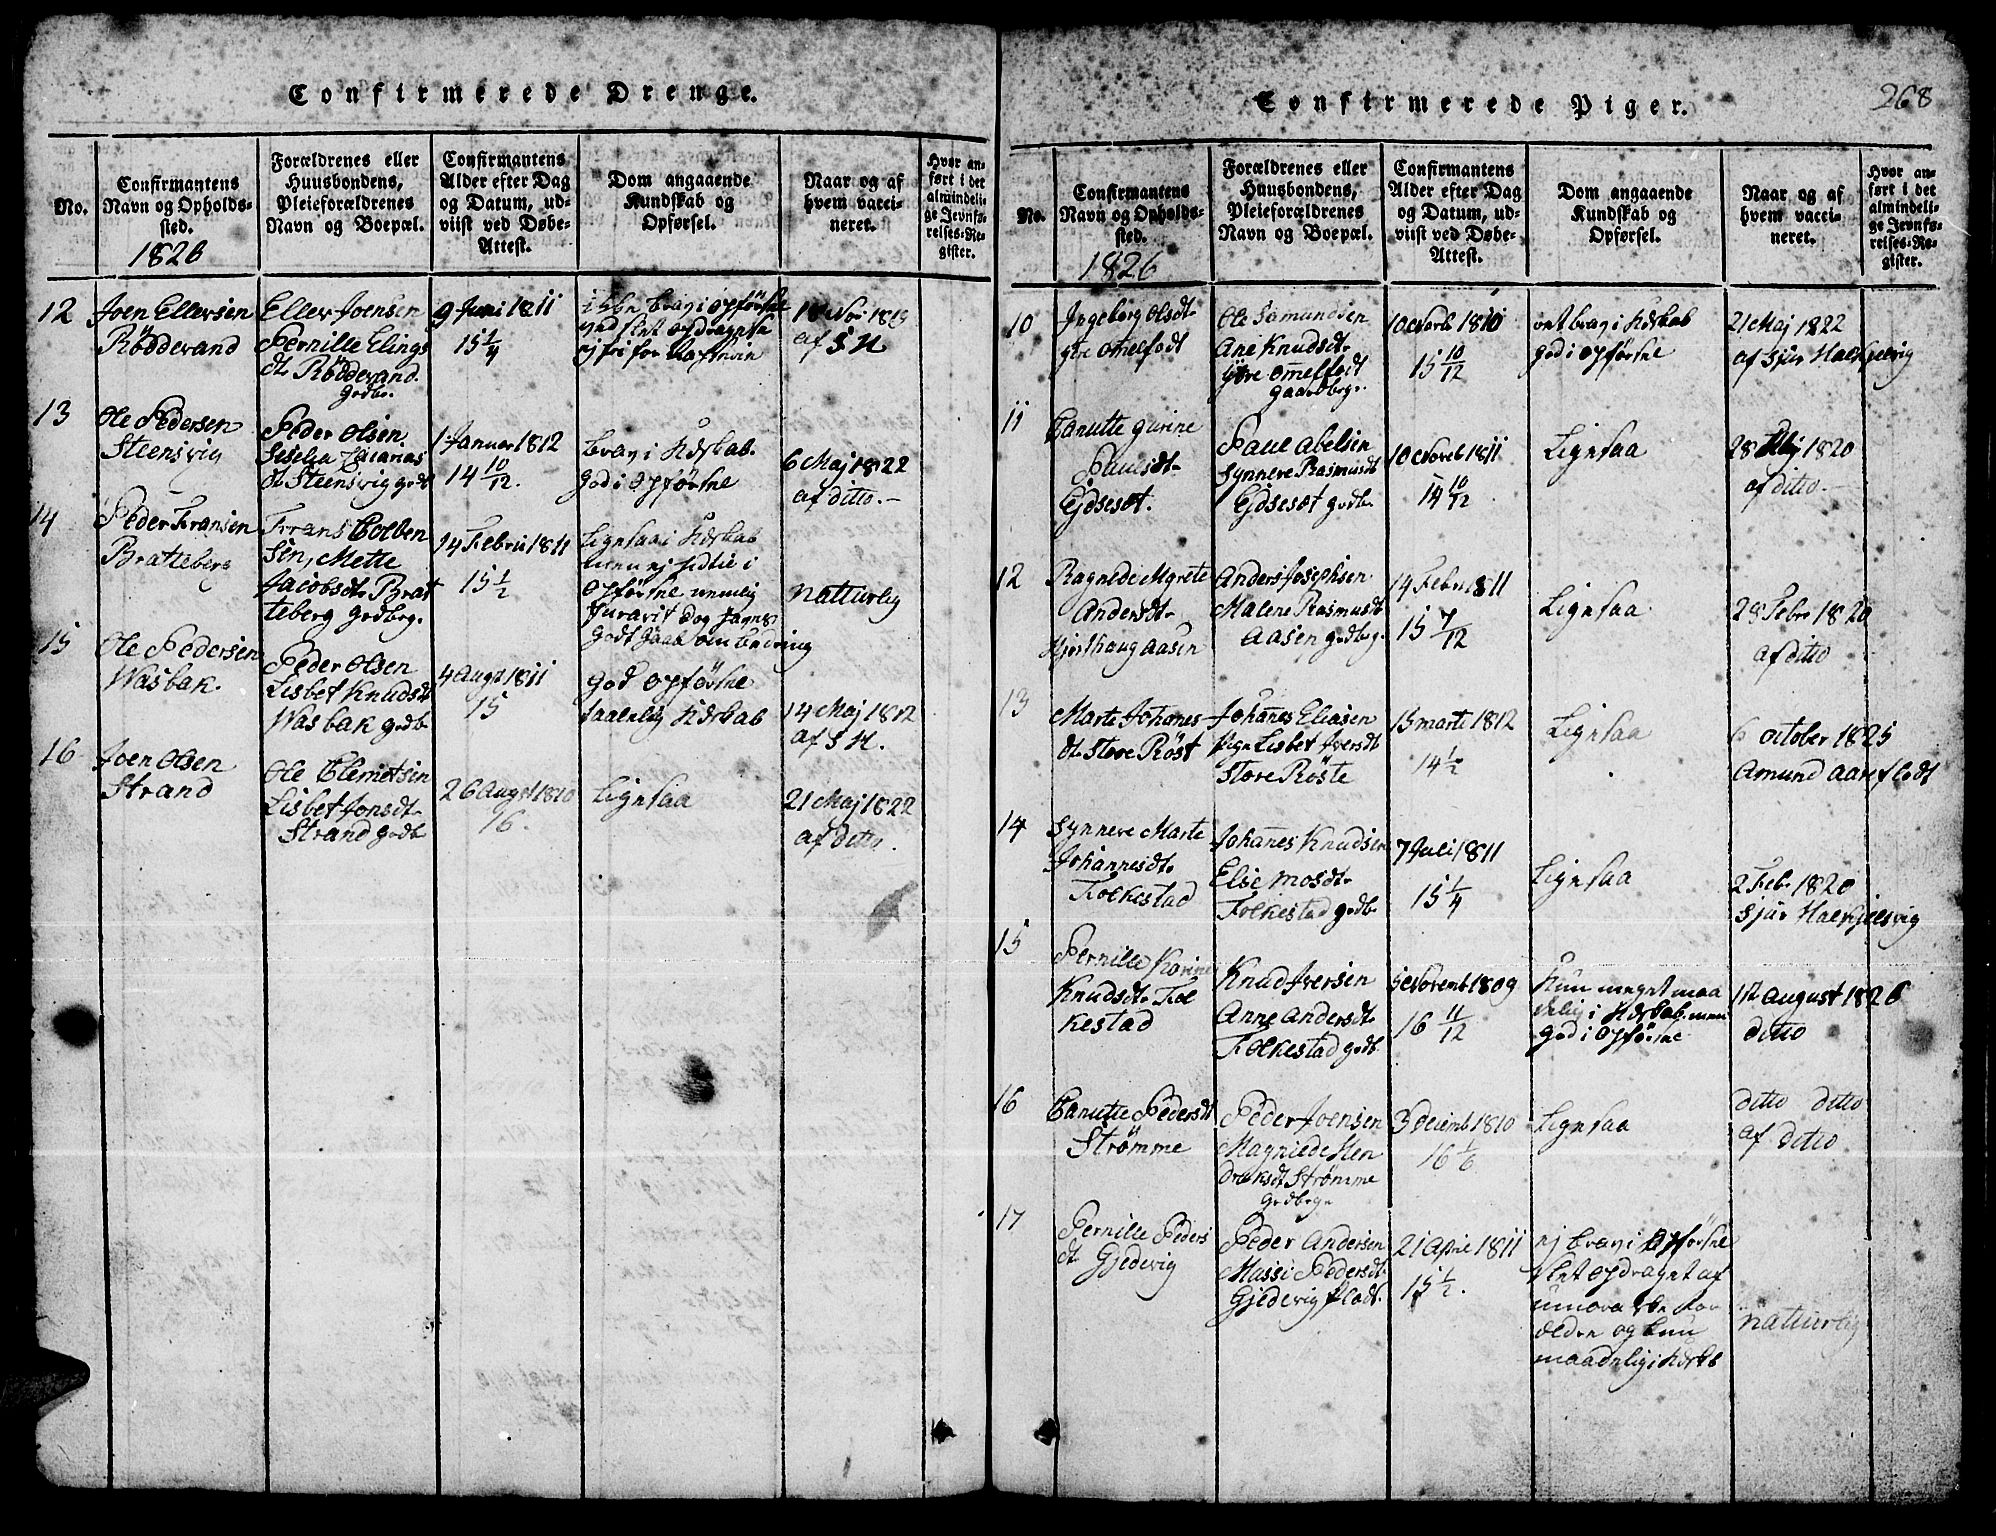 Confirmerede Drenge.
No.
Confirmantens
Navn og Opholds-
sted.
1826
Forældrenes eller
Huusbondens,
Pleieforældrenes
Navn og Boepæl.
Confirmantens
Alder efter Dag
og Datum, ud-
viist ved Døbe-
Attest.
Dom angaaende
Kundskab og
Opførsel.
Naar og af
hvem vacci-
neret.
Hvor an-
ført i det
almindeli-
ge Jevnfø-
relses-Re-
gister.
12
Joen Ellersen
Röddevand
Eller Joensen
Pernille Elings
dt. Röddevand
9 Juni 1811
15 1/4
af S H
13
Ole Pedersen
Steensvig
Peder Olsen
dt. Steensvig
1 Januar 1812
14 10/12.
brav i Kdskab.
god i opførsne
6 Maj 1822
af ditto.
14
Peder Fransen
Bratteberg
Frans Colben
sen, Mette
Jacobsdt. Brat
teberg
14 Februi 1811
15 1/2
Lignsaa i Kdskab
opførsne
Natturlig
15
Ole Pedersen
Wasbak.
Peder Olsen
Lisbet Knudsdt
Wasbak
4 Augst 1811
15
god opførsne
taalelig Kdskab
14 Maj 1812
af S H.
16
Joen Olsen
Strand
Ole Clemetsen
Lisbet Jonsdt.
Strand
26 Augst 1810
16.
Lignsaa
21 Maj 1822
af ditto.
Confirmerede Piger.
268
No.
Confirmantens
Navn og Opholds-
sted.
1826
Forældrenes eller
Huusbondens,
Pleieforældrenes
Navn og Boepæl.
Confirmantens
Alder efter Dag
og Datum, ud-
viist ved Døbe-
Attest.
Dom angaaende
Kundskab og
Opførsel.
Naar og af
hvem vacci-
neret.
Hvor an-
ført i det
almindeli-
ge Jevnfø-
relses-Re-
gister.
10
Ingeborg Olsdt.
ytre omelfodt
Ole Samundsen
Ane Knudsdt.
ytre omelfodt
10 Novb 1810
15 10/12
ret brav i Kdskab
god i opførsne
21 Maj 1822
af Sjur Halkjelsvig
11
Canutte gurine
Paulsdt.
Ejdseset.
Paul Abelsen
Synneve Rasmusdt
Ejdseset
10 Noveb 1811
14 10/12
Lignsaa
28 Maj 1820
af ditto
12
Ragnede Mgrete
Andersdt.
Hjorthaug Aasen
Anders Josephsen
Malene Rasmusdt
Aasen
14 Febr 1811
15 7/12
Lignsaa
28 Febr 1820
af ditto
13
Marte Johanes
dt. Store Röst
Johanes Eliasen
Lisbet Iversdt
Store Röste
15 marti 1812
14 1/2
Lignsaa
6 october 1825
Amund Aareflodt
14
Synneve Marte
Johannesdt.
Folkestad
Johanes Knudsen
Else Mosdt.
Folkestad
7 Juli 1811
15 1/4
Lignsaa
2 Feb. 1820
Sjur Halkjelsvig
15
Pernille Karine
Knudsdt. Fol
kestad
Knud Iversen
Anne Andersdt.
Folkestad
5 Novemb 1809
16 11/12
Kun meget maa
delig i Kdskab men
god i opførsne
112 August 1826
ditto
16
Canutte Pedersdt
Strömme
Peder Joensen
Magniede Hen
dreksdt Strömme
3 decimb 1810
16 1/6
Lignsaa
ditto ditto
af ditto
17
Pernille Peders
dt. Gjedevig
Peder Andersen
Massi Pedersdt.
Gjedevig
21 Aprie 1811
15 1/2.
ej brav i opførsne
slet opdraget af
maadelig i Kdskb
naturlig